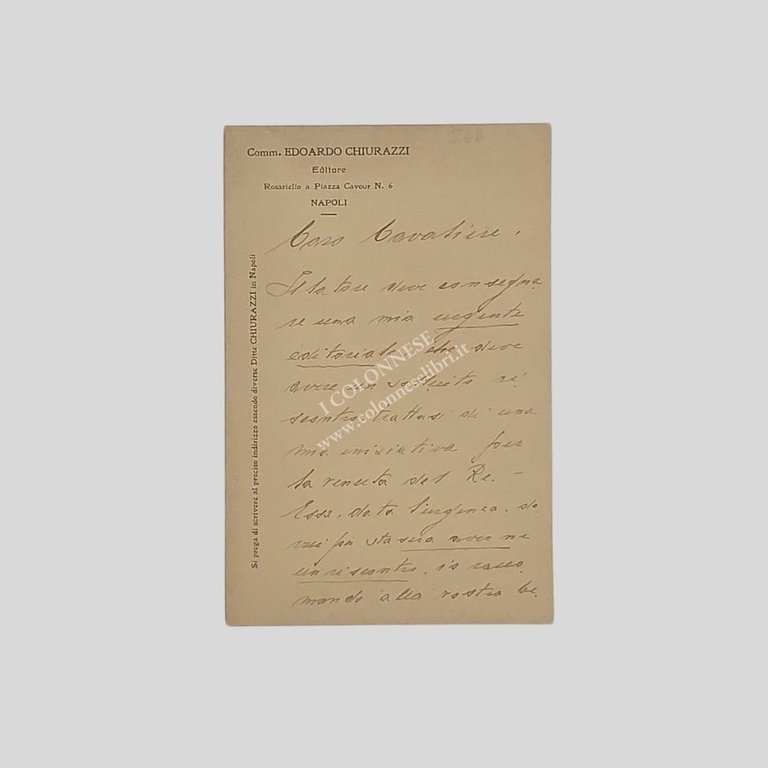 Comm. EDOARDO CHIURAZZI
Editore
Rosariello a Piazza Cavour N. 6
NAPOLI
Si prega di scrivere al preciso indirizzo essendo diverse Ditte CHIURAZZI in Napoli
Caro Cavaliere,
Il latore deve consegna
re una mia urgente
editoriale che deve
avere un sollecito ri
scontro trattasi di una
mia iniziativa per
la venuta del Re. —
Essa, data l'urgenza, do
vrei per stasera aver ne
un riscontro. io racco
mando alla vostra be
I COLONNESE
www.colonneselibri.it